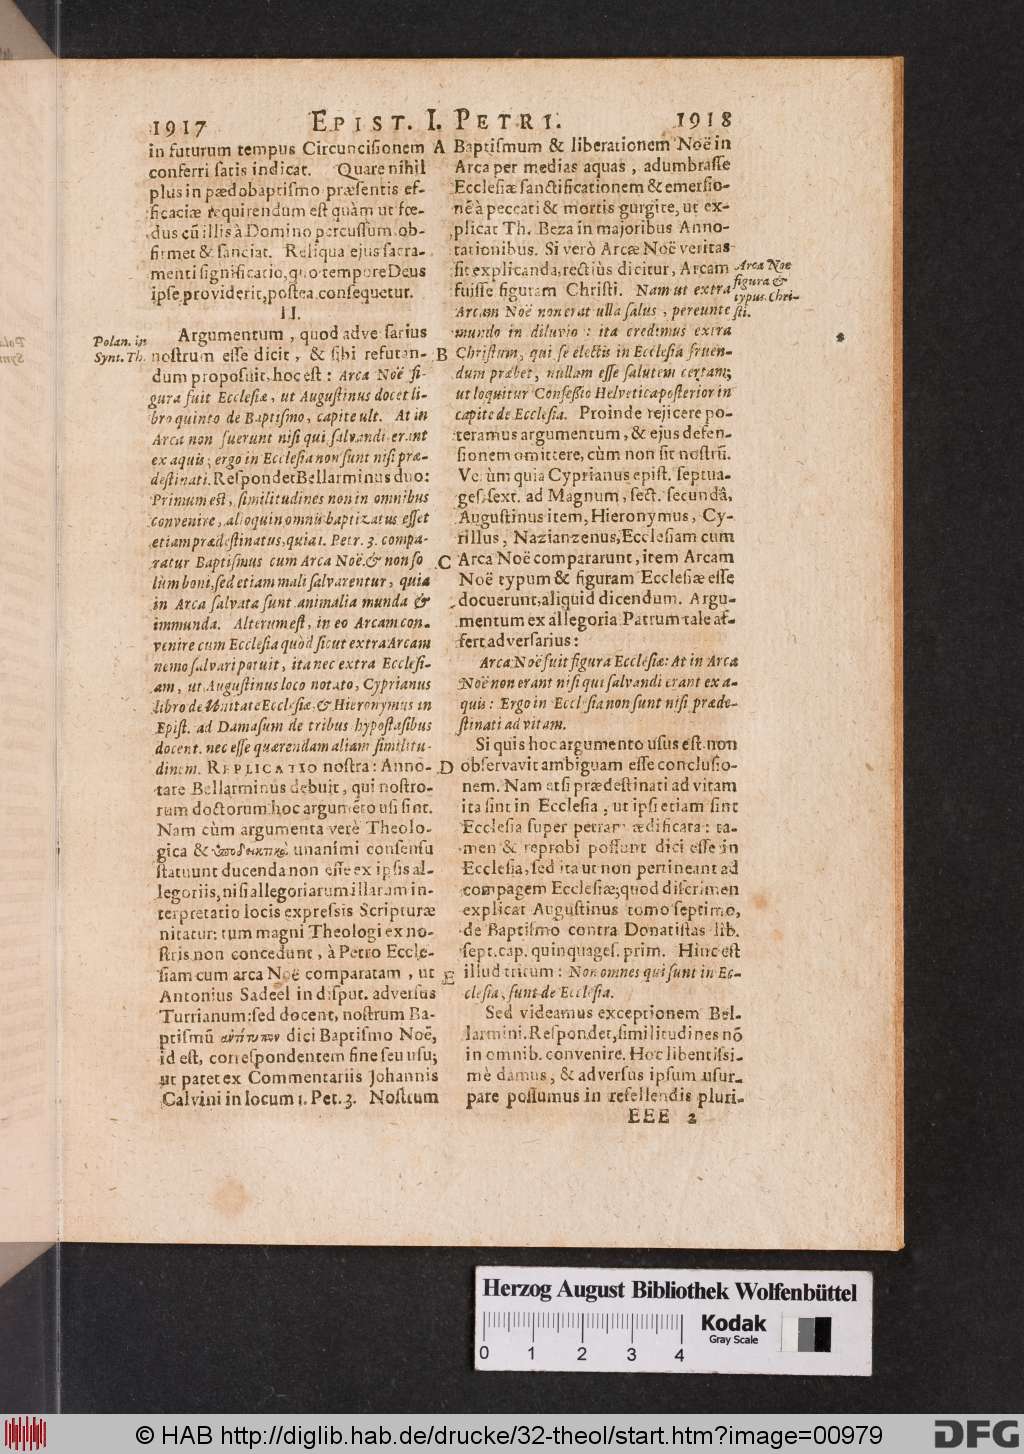 1917
EPIST. I. PETRI.
1918
in futurum tempus Circuncisionem
conferri satis indicat. Quare nihil
plus in pædobaptismo præsentis ef-
ficaciæ requirendum est quàm ut fœ-
dus cū illis à Domino percussum ob-
firmet & sanciat. Reliqua ejus sacra-
menti significatio, quo tempore Deus
ipse providerit, postea consequetur.
II.
Polan. in
Synt. Th.
Argumentum, quod adversarius
nostrum esse dicit, & sibi refutan-
dum proposuit, hoc est: Arca Noë fi-
gura fuit Ecclesiæ, ut Augustinus docet li-
bro quinto de Baptismo, capite ult. At in
Arca non fuerunt nisi qui salvandi erant
ex aquis; ergo in Ecclesia non sunt nisi præ-
destinati. Respondet Bellarminus duo:
Primum est, similitudines non in omnibus
convenire, alioquin omnis baptizatus esset
etiam prædestinatus, quia 1. Petr. 3. compa-
ratur Baptismus cum Arca Noë. & non so
lùm boni, sed etiam mali salvarentur, quia
in Arca salvata sunt animalia munda &
immunda. Alterum est, in eo Arcam con-
venire cum Ecclesia quòd sicut extra Arcam
nemo salvari potuit, ita nec extra Ecclesi-
am, ut Augustinus loco notato, Cyprianus
libro de Unitate Ecclesiæ, & Hieronymus in
Epist. ad Damasum de tribus hypostasibus
docent. nec esse quærendam aliam similitu-
dinem. REPLICATIO nostra: Anno-
tare Bellarminus debuit, qui nostro-
rum doctorum hoc argumēto usi sint.
Nam cùm argumenta verè Theolo-
gica & unanimi consensu
statuunt ducenda non esse ex ipsis al-
legoriis, nisi allegoriarum illarum in-
terpretatio locis expressis Scripturæ
nitatur: tum magni Theologi ex no-
stris non concedunt, à Petro Eccle-
siam cum arca Noë comparatam, ut
Antonius Sadeel in disput. adversus
Turrianum: sed docent, nostrum Ba-
ptismū ἀντίτυπον dici Baptismo Noë,
id est, correspondentem fine seu usu;
ut patet ex Commentariis Johannis
Calvini in locum 1. Pet. 3. Nostrum
A
B
C
D
E
Baptismum & liberationem Noë in
Arca per medias aquas, adumbrasse
Ecclesiæ sanctificationem & emersio-
nē à peccati & mortis gurgite, ut ex-
plicat Th. Beza in majoribus Anno-
tationibus. Si verò Arcæ Noë veritas
sit explicanda, rectiùs dicitur, Arcam
fuisse figuram Christi. Nam ut extra
Arcam Noë non erat ulla salus, pereunte
mundo in diluvio: ita credimus extra
Christum, qui se electis in Ecclesia fruen-
dum præbet, nullam esse salutem certam;
ut loquitur Confessio Helvetica posterior in
capite de Ecclesia. Proinde rejicere po-
teramus argumentum, & ejus defen-
sionem omittere, cùm non sit nostrū.
Verùm quia Cyprianus epist. septua-
ges. sext. ad Magnum, sect. secundâ,
Augustinus item, Hieronymus, Cy-
rillus, Nazianzenus, Ecclesiam cum
Arca Noë compararunt, item Arcam
Noë typum & figuram Ecclesiæ esse
docuerunt, aliquid dicendum. Argu-
mentum ex allegoria Patrum tale af-
fert adversarius:
Arca Noë fuit figura Ecclesiæ: At in Arca
Noë non erant nisi qui salvandi erant ex a-
quis: Ergo in Ecclesia non sunt nisi præde-
stinati ad vitam.
Si quis hoc argumento usus est, non
observavit ambiguam esse conclusio-
nem. Nam etsi prædestinati ad vitam
ita sint in Ecclesia, ut ipsi etiam sint
Ecclesia super petram ædificata: ta-
men & reprobi possunt dici esse in
Ecclesia, sed ita ut non pertineant ad
compagem Ecclesiæ; quod discrimen
explicat Augustinus tomo septimo,
de Baptismo contra Donatistas lib.
sept. cap. quinquages. prim. Hinc est
illud tritum: Non omnes qui sunt in Ec-
clesia, sunt de Ecclesia.
Sed videamus exceptionem Bel-
larmini. Respondet, similitudines nō
in omnib. convenire. Hoc libentissi-
mè damus, & adversus ipsum usur-
pare possumus in refellendis pluri-
EEE 2
Arca Noe
figura &
typus Chri-
sti.
Herzog August Bibliothek Wolfenbüttel
Kodak
Gray Scale
0 1 2 3 4
© HAB http://diglib.hab.de/drucke/32-theol/start.htm?image=00979
DFG